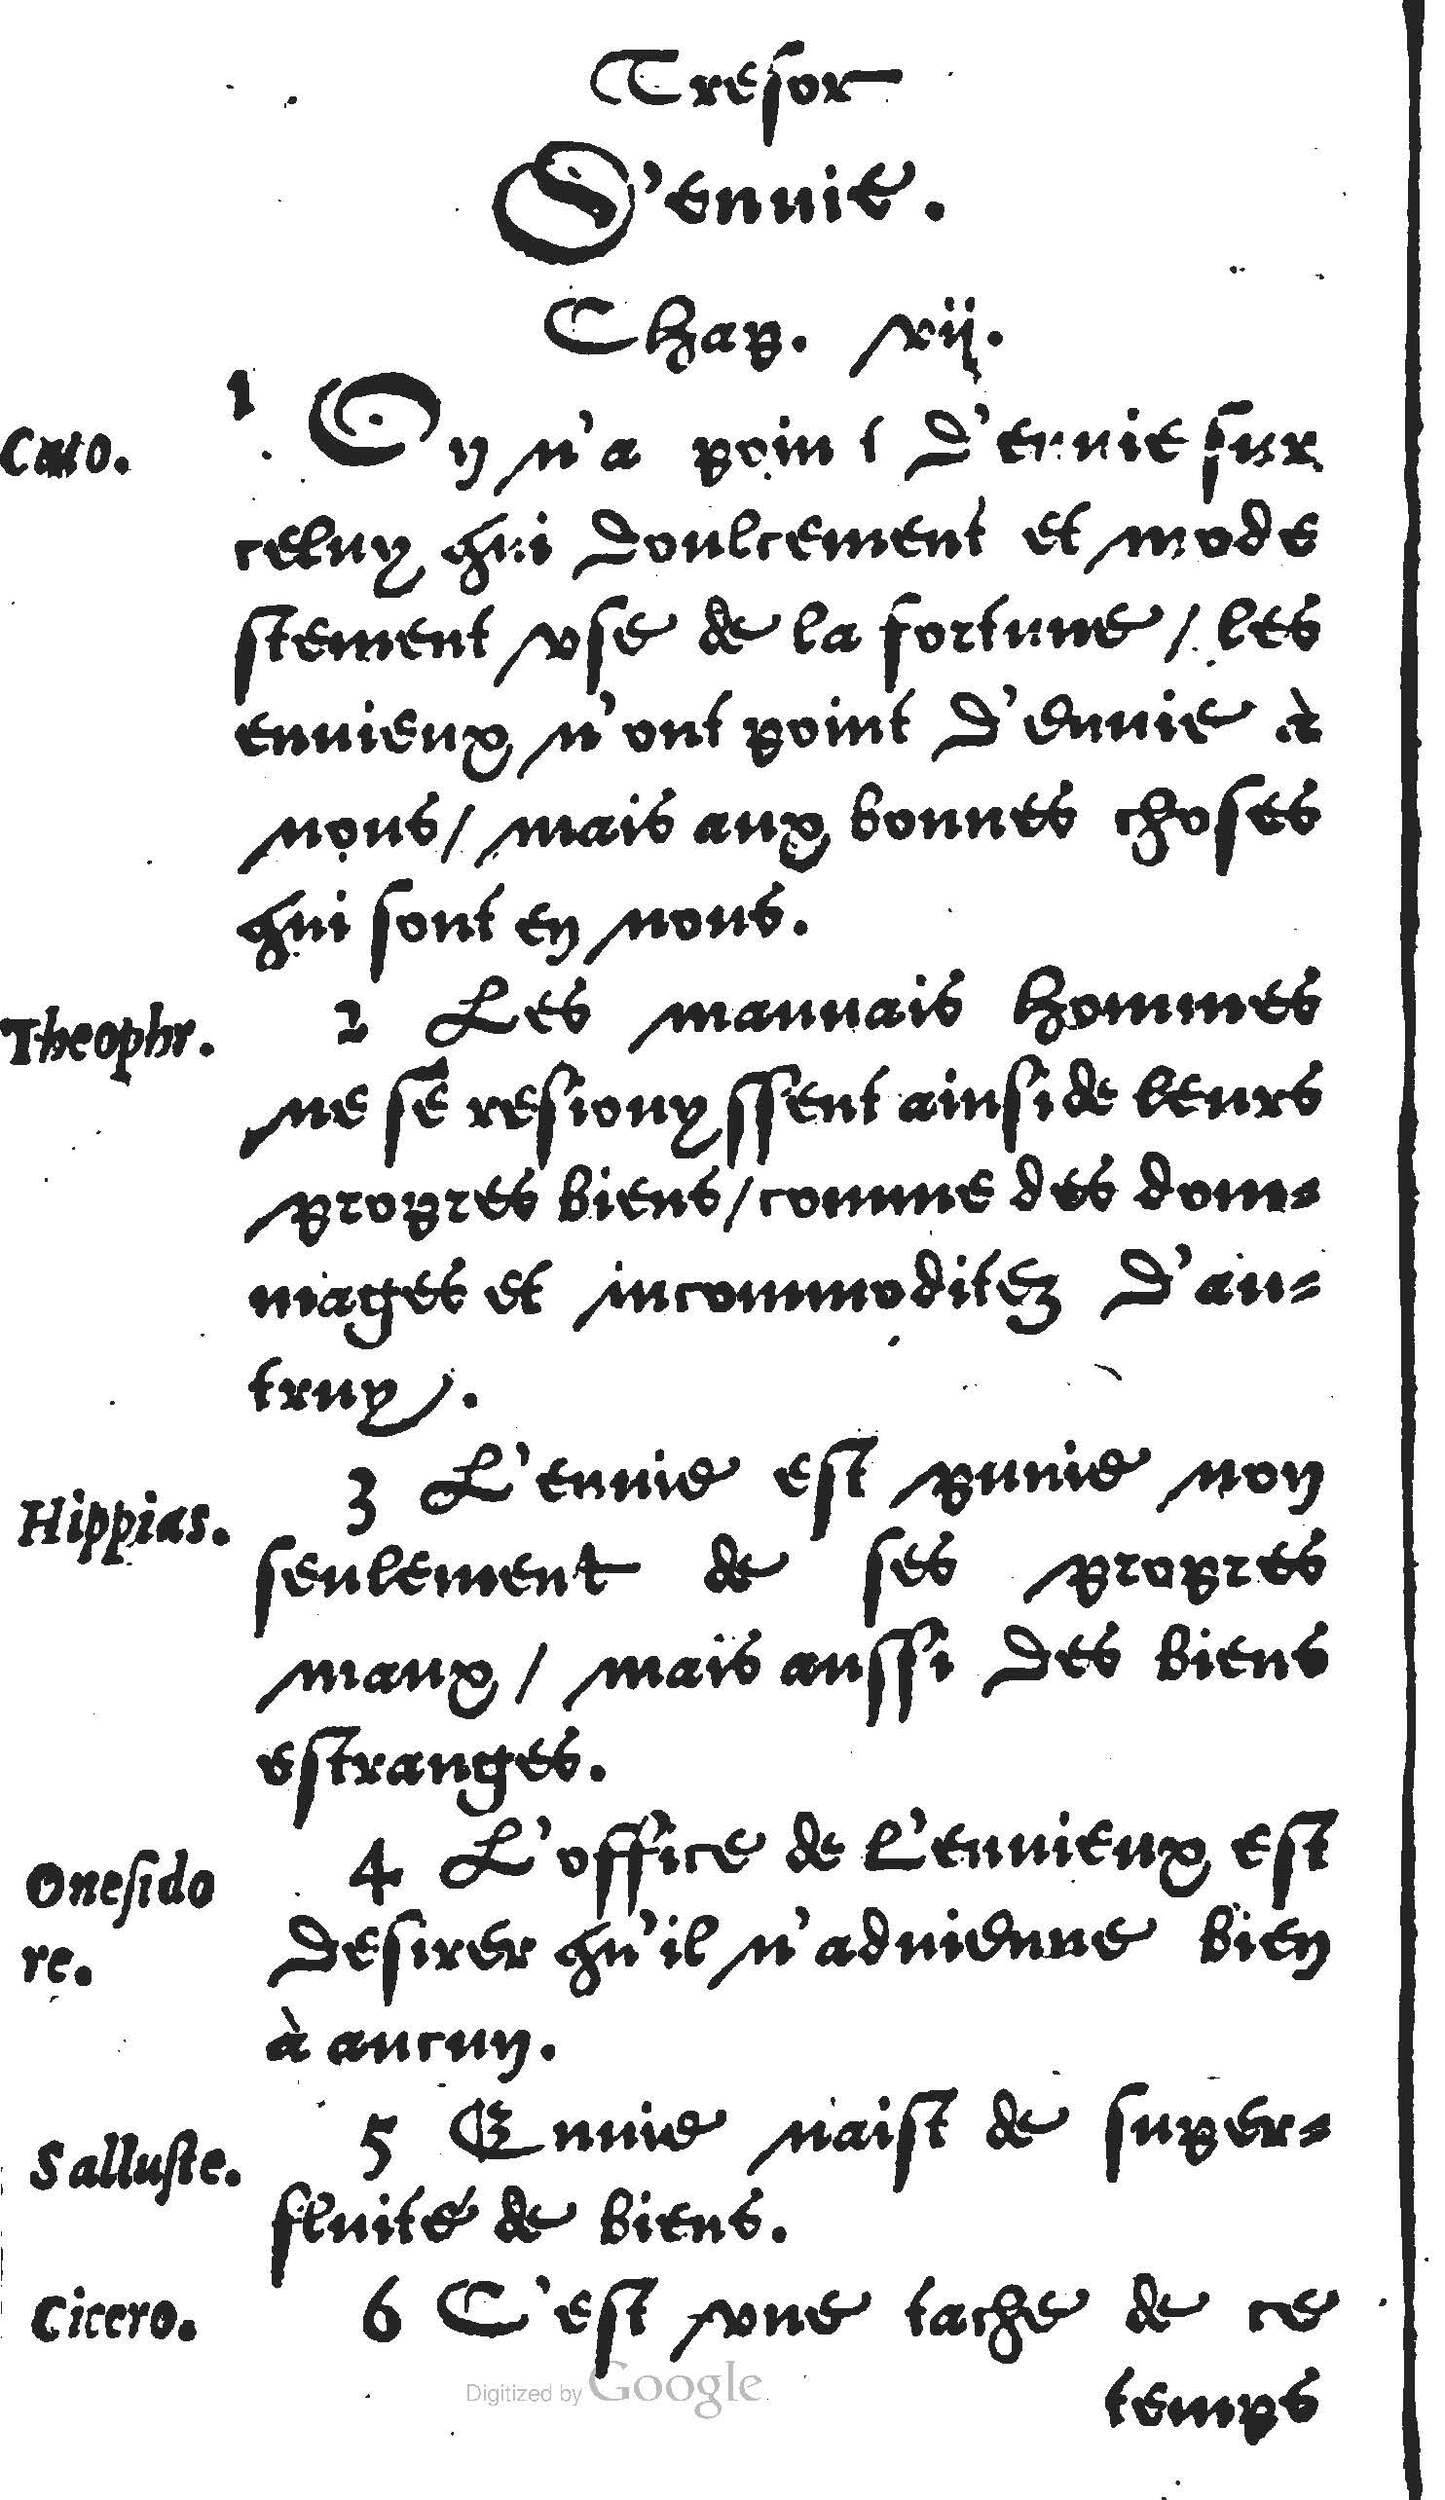 Tresor
D'enuie.
Chap. vij.
1
Cato. On n'a point d'enuie sur
celuy qui doulcement et mode
stement vse de la fortune / les
enuieux n'ont point d'enuie à
nous / mais aux bonnes choses
qui sont en nous.
Theophr. 2 Les mauuais hommes
ne se resiouyssent ainsi de leurs
propres biens / comme des dom-
mages et incommoditez d'au-
truy.
Hippias. 3 L'enuie est punie non
seulement de ses propres
maux / mais aussi des biens
estranges.
Onesido 4 L'office de l'enuieux est
re. desirer qu'il n'aduienne bien
à aucun.
Salluste. 5 Enuie naist de super-
fluité de biens.
Cicero. 6 C'est vne tache de ce
Digitized by Google
temps